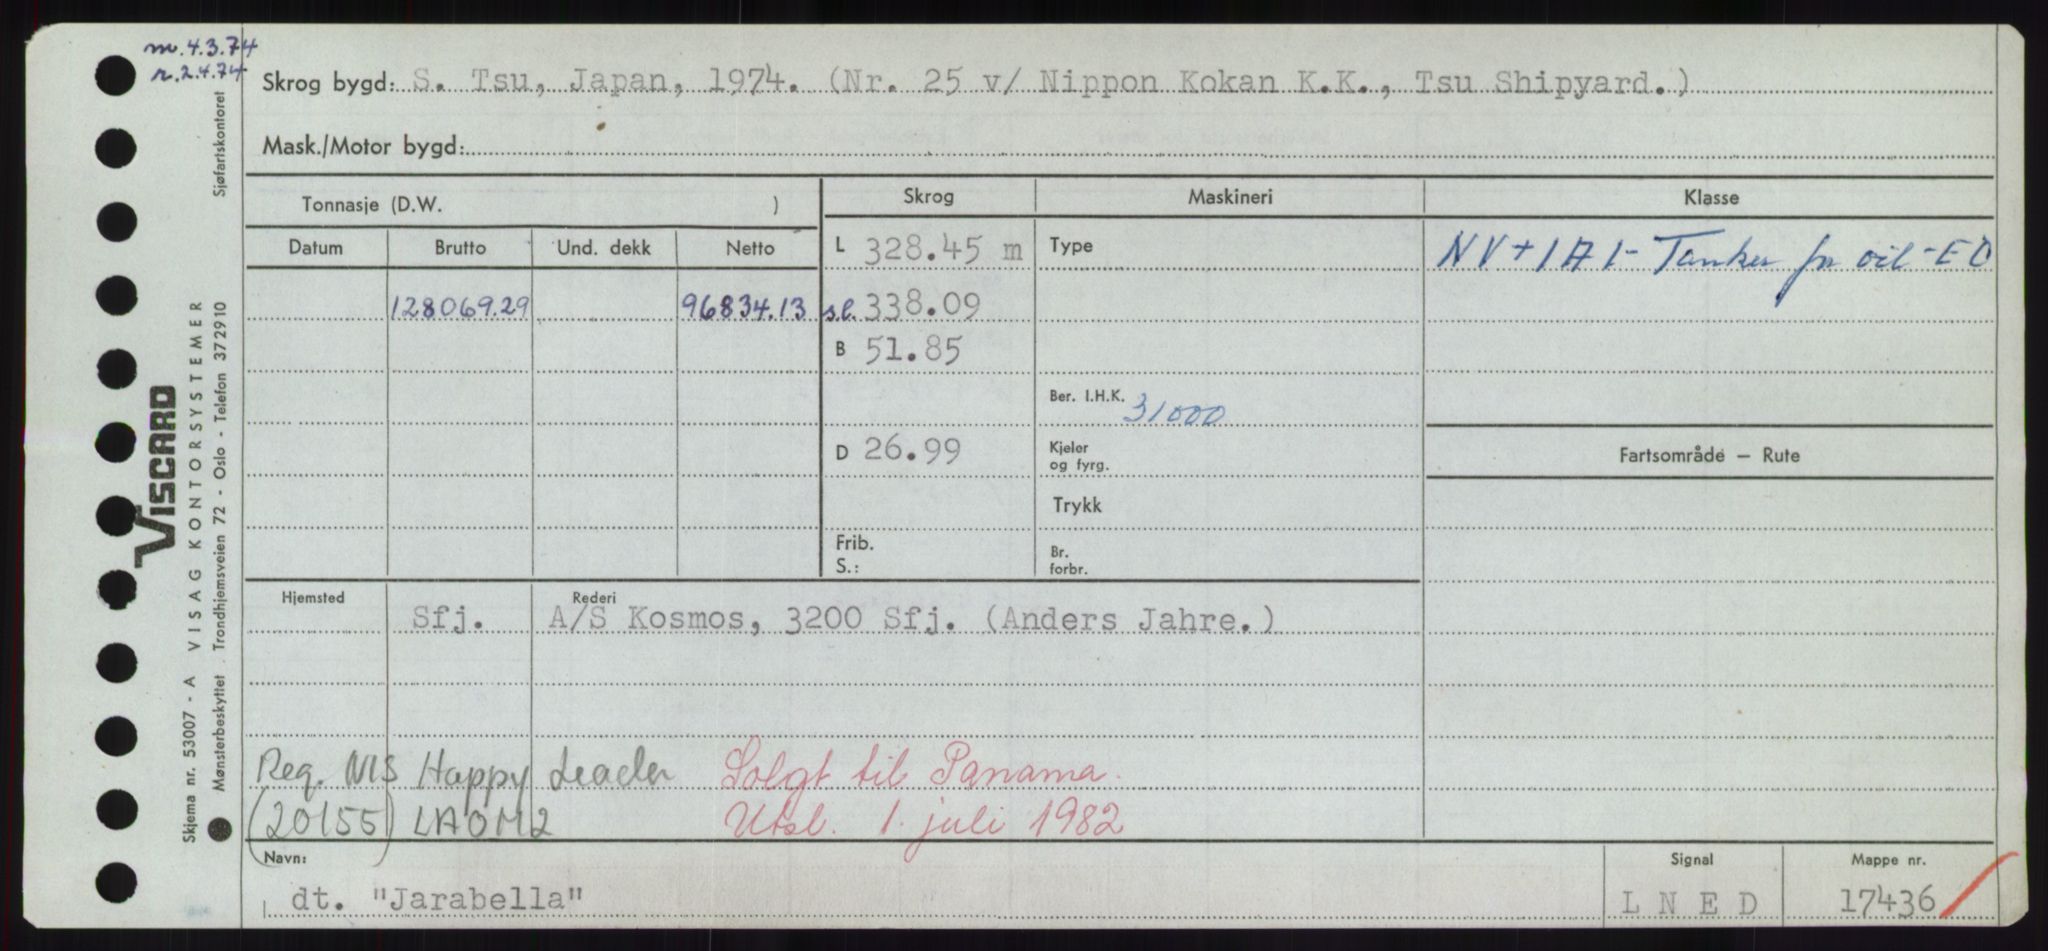 m. 4.3.74
r. 2.4.74
Skrog bygd: S. Tsu, Japan, 1974. (Nr. 25 v/ Nippon Kokan K.K., Tsu Shipyard.)
Mask./Motor bygd:
Tonnasje (D.W. )
Skrog Maskineri Klasse
Datum Brutto Und. dekk Netto
L 328.45 m Type NV+1A1- Tanker for oil -EO
128069.29 96834.13 s.l. 338.09
B 51.85
Ber. I.H.K. 31000
D 26.99 Kjeler og fyrg.
Fartsområde — Rute
Trykk
Frib.
S.:
Br. forbr.
Hjemsted Rederi
Sfj. A/S Kosmos, 3200 Sfj. (Anders Jahre.)
Reg. NIS Happy Leader Solgt til Panama.
(20155) LAOM2 Utsl. 1. juli 1982
Navn: Signal Mappe nr.
dt. "Jarabella" L N E D 17436
VISCARD
Skjema nr. 53007 - A VISAG KONTORSYSTEMER
Mønsterbeskyttet . Trondhjemsveien 72 - Oslo - Telefon 372910 Sjøfartskontoret